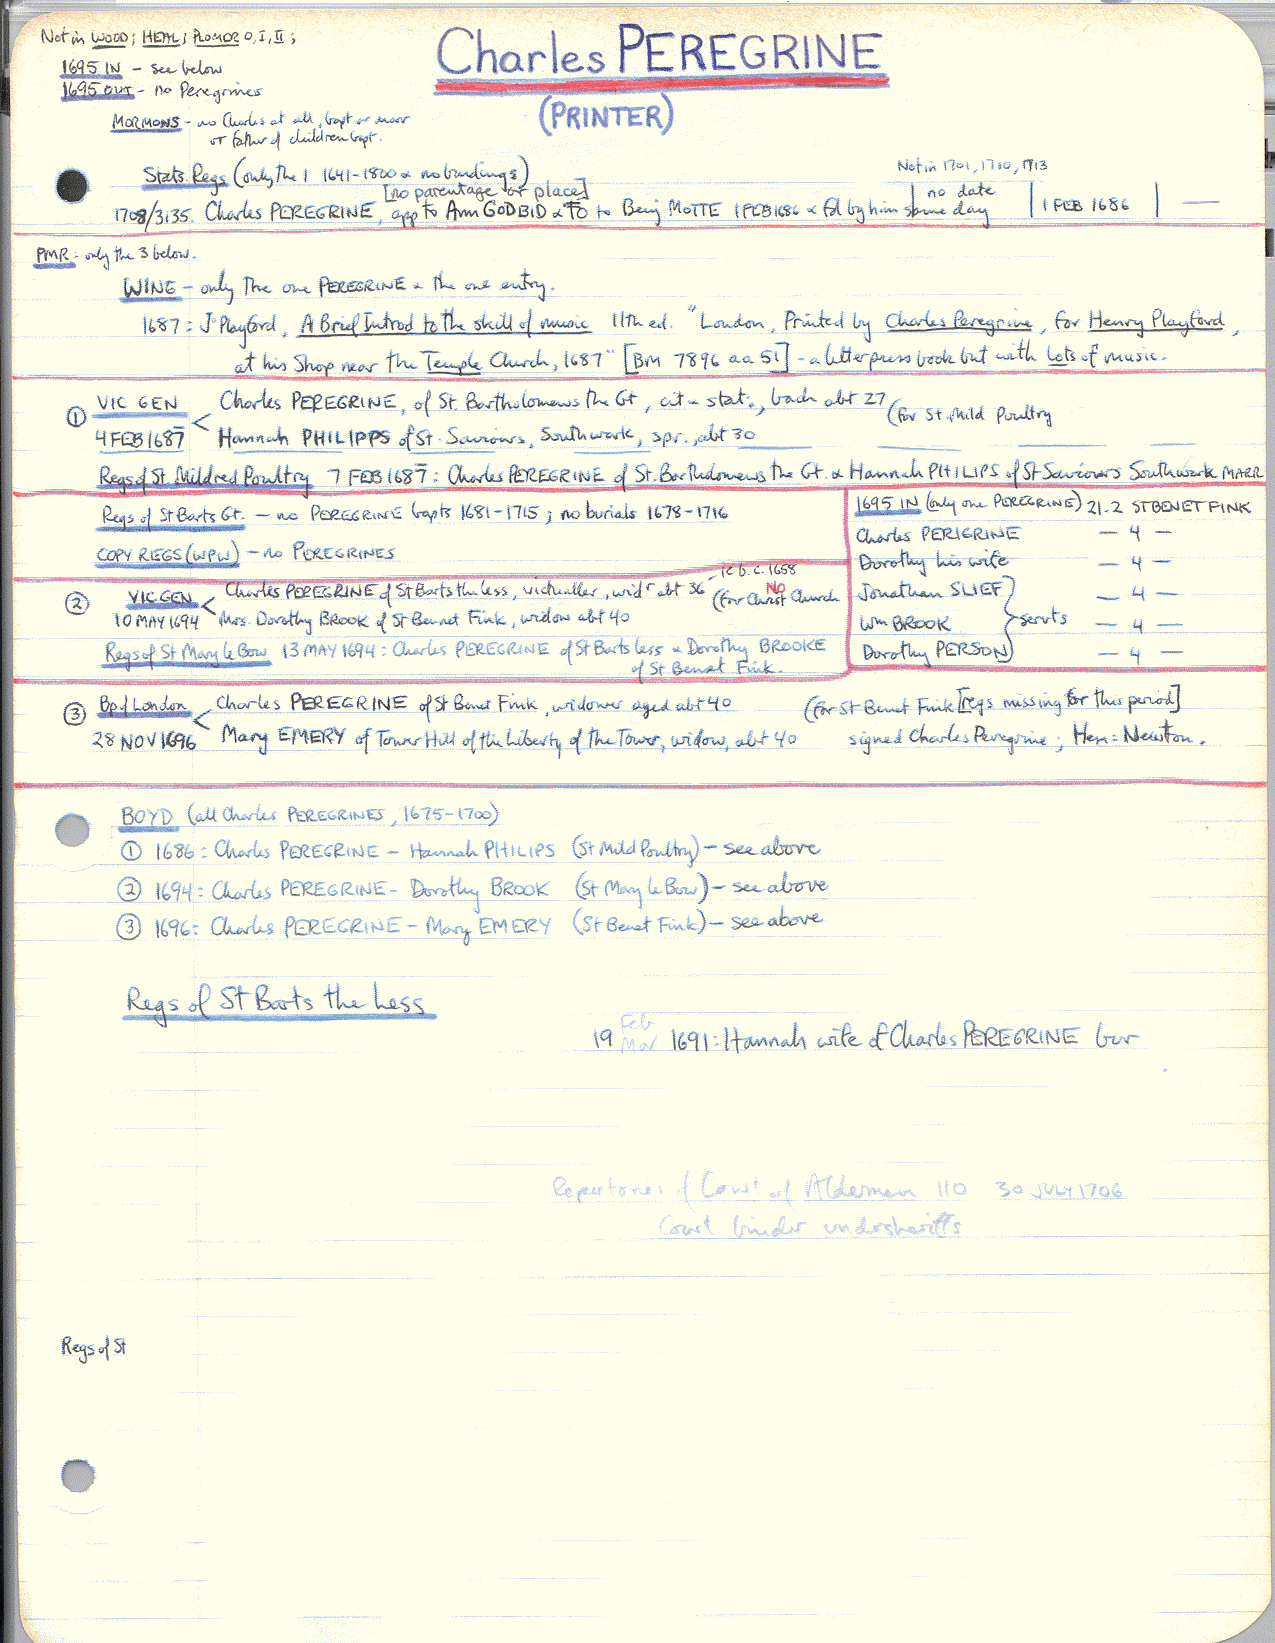 Not in WOOD; HEAL; PLOMER O, I, II;
Charles PEREGRINE
1695 IN - see below
1695 OUT - no Peregrines
(PRINTER)
MORMONS - no Charles at all, bapt or marr
or father of children bapt.
Not in 1701, 1710, 1713
Stats. Regs (only the 1 1641-1800 & no bindings)
[no parentage or place]
1708/3135. Charles PEREGRINE, app to Ann GODBID & TO to Benj MOTTE 1 FEB 1686 & fd by him same day | no date | 1 FEB 1686 | —
PMR: only the 3 below.
WING - only the one PEREGRINE & the one entry.
1687: J. Playford, A Brief Introd to the skill of music 11th ed. "London, Printed by Charles Peregrine, for Henry Playford,
at his Shop near the Temple Church, 1687" [BM 7896 aa 51] - a letterpress book but with lots of music.
① VIC GEN
4 FEB 1687
Charles PEREGRINE, of St. Bartholomews the Gt, cit & stat., bach abt 27
Hannah PHILIPPS of St. Saviours, Southwark, spr., abt 30
(for St. Mild Poultry
Regs of St Mildred Poultry 7 FEB 1687: Charles PEREGRINE of St. Bartholomews the Gt. & Hannah PHILIPS of St Saviours Southwark MARR
Regs of St Barts Gt. - no PEREGRINE bapts 1681-1715; no burials 1678-1716
COPY REGS (WPW) - no PEREGRINES
1695 IN (only one PEREGRINE) 21.2 ST BENET FINK
Charles PERIGRINE - 4 -
Dorothy his wife - 4 -
Jonathan SLIEF - 4 -
Wm BROOK } servts - 4 -
Dorothy PERSON - 4 -
② VIC GEN
10 MAY 1694
Charles PEREGRINE of St Barts the less, victualler, widr abt 36 - ie b.c. 1658
Mrs. Dorothy BROOK of St Bennet Fink, widow abt 40
(for Christ Church
NO
Regs of St Mary le Bow 13 MAY 1694: Charles PEREGRINE of St Barts less & Dorothy BROOKE
of St Benet Fink.
③ Bp of London
28 NOV 1696
Charles PEREGRINE of St Benet Fink, widower aged abt 40
Mary EMERY of Tower Hill of the Liberty of the Tower, widow, abt 40
(for St Benet Fink [regs missing for this period]
signed Charles Peregrine; Hen: Newton.
BOYD (all Charles PEREGRINES, 1675-1700)
① 1686: Charles PEREGRINE - Hannah PHILIPS (St Mild Poultry) - see above
② 1694: Charles PEREGRINE - Dorothy BROOK (St Mary le Bow) - see above
③ 1696: Charles PEREGRINE - Mary EMERY (St Benet Fink) - see above
Regs of St Barts the Less
Feb
19 Mar 1691: Hannah wife of Charles PEREGRINE bur
Repertories of Court of Alderman 110 30 JULY 1706
Court binder undersheriffs
Regs of St